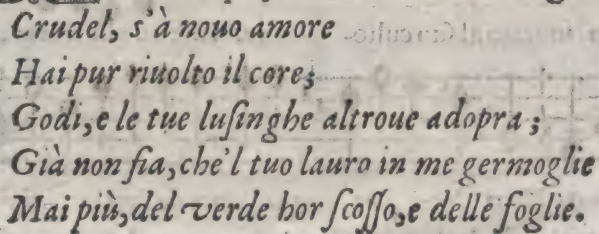 Crudel, s'à nouo amore
Hai pur riuolto il core;
Godi, e le tue luſinghe altroue adopra;
Già non fia, che'l tuo lauro in me germoglie
Mai più, del verde hor ſcoſſo, e delle foglie.